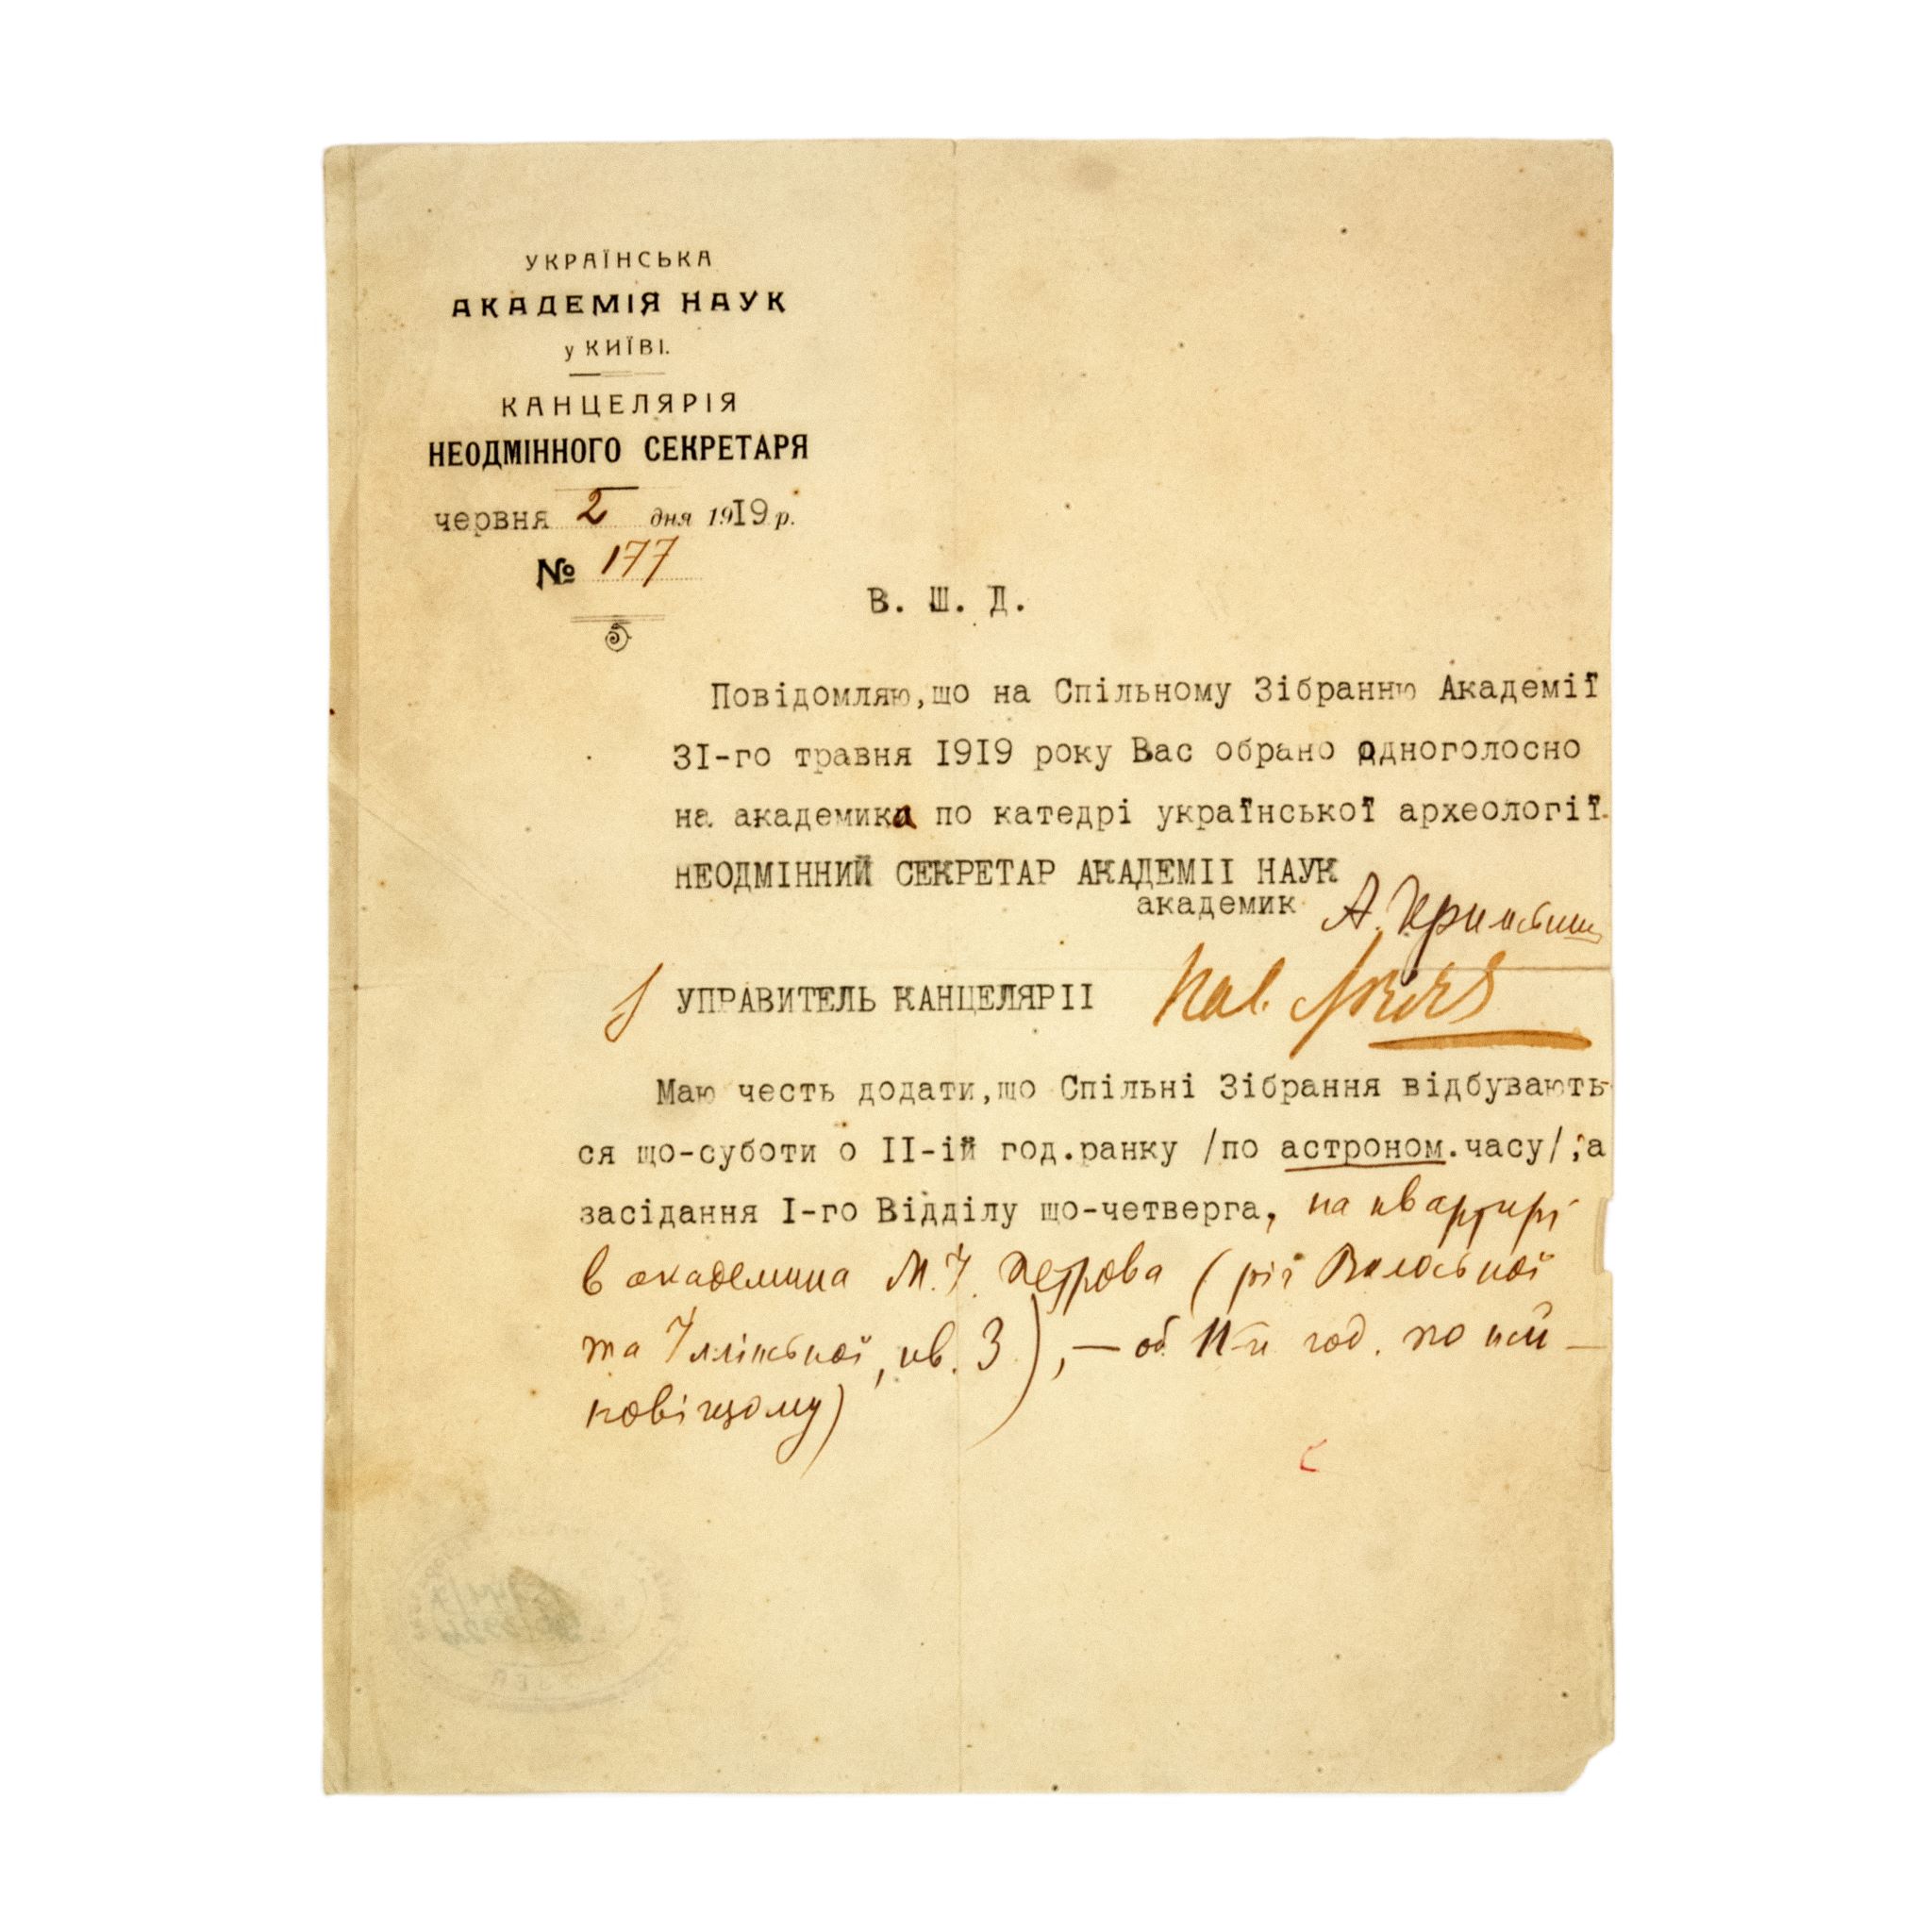 УКРАЇНСЬКА
АКАДЕМІЯ НАУК
у КИЇВІ.
КАНЦЕЛЯРІЯ
НЕОДМІННОГО СЕКРЕТАРЯ
червня 2 дня 1919 р.
№ 177
В. Ш. Д.
Повідомляю,що на Спільному Зібранню Академії
31-го травня 1919 року Вас обрано одноголосно
на академика по катедрі української археології.
НЕОДМІННИЙ СЕКРЕТАР АКАДЕМІІ НАУК
академик А. Кримський
УПРАВИТЕЛЬ КАНЦЕЛЯРІІ
Маю честь додати,що Спільні Зібрання відбувають-
ся що-суботи о II-ій год.ранку /по астроном.часу/,а
засідання I-го Відділу що-четверга, на квартирі
в академика М. І. Петрова (ріг Волоської
та Іллінської, кв. 3), — об 11-й год. по